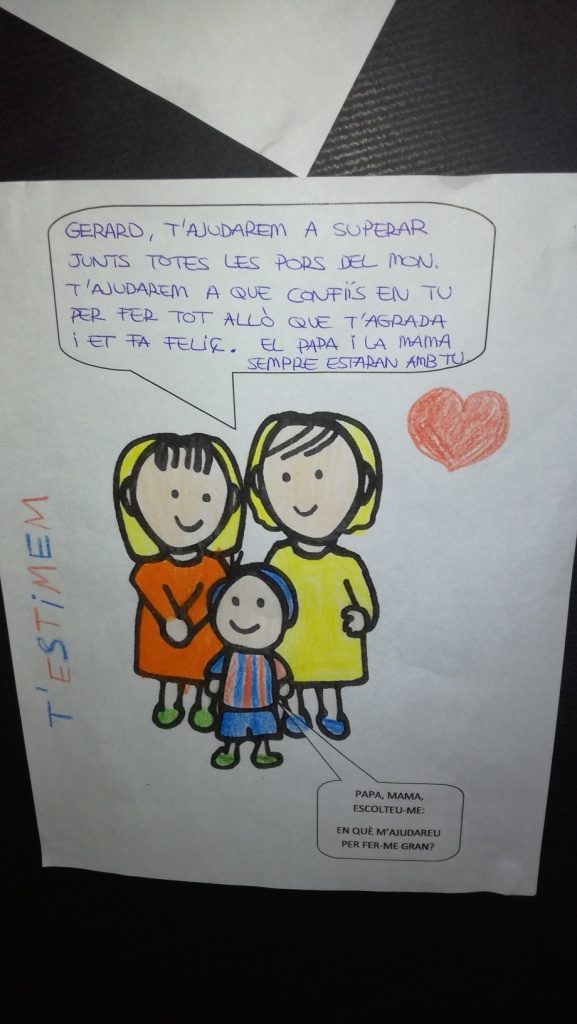 GERARD, T'AJUDAREM A SUPERAR
JUNTS TOTES LES PORS DEL MON.
T'AJUDAREM A QUE CONFIÏS EN TU
PER FER TOT ALLÒ QUE T'AGRADA
i ET FA FELIÇ. EL PAPA i LA MAMA
SEMPRE ESTARAN AMB TU.
T'ESTiMEM
PAPA, MAMA,
ESCOLTEU-ME:
EN QUÈ M'AJUDAREU
PER FER-ME GRAN?